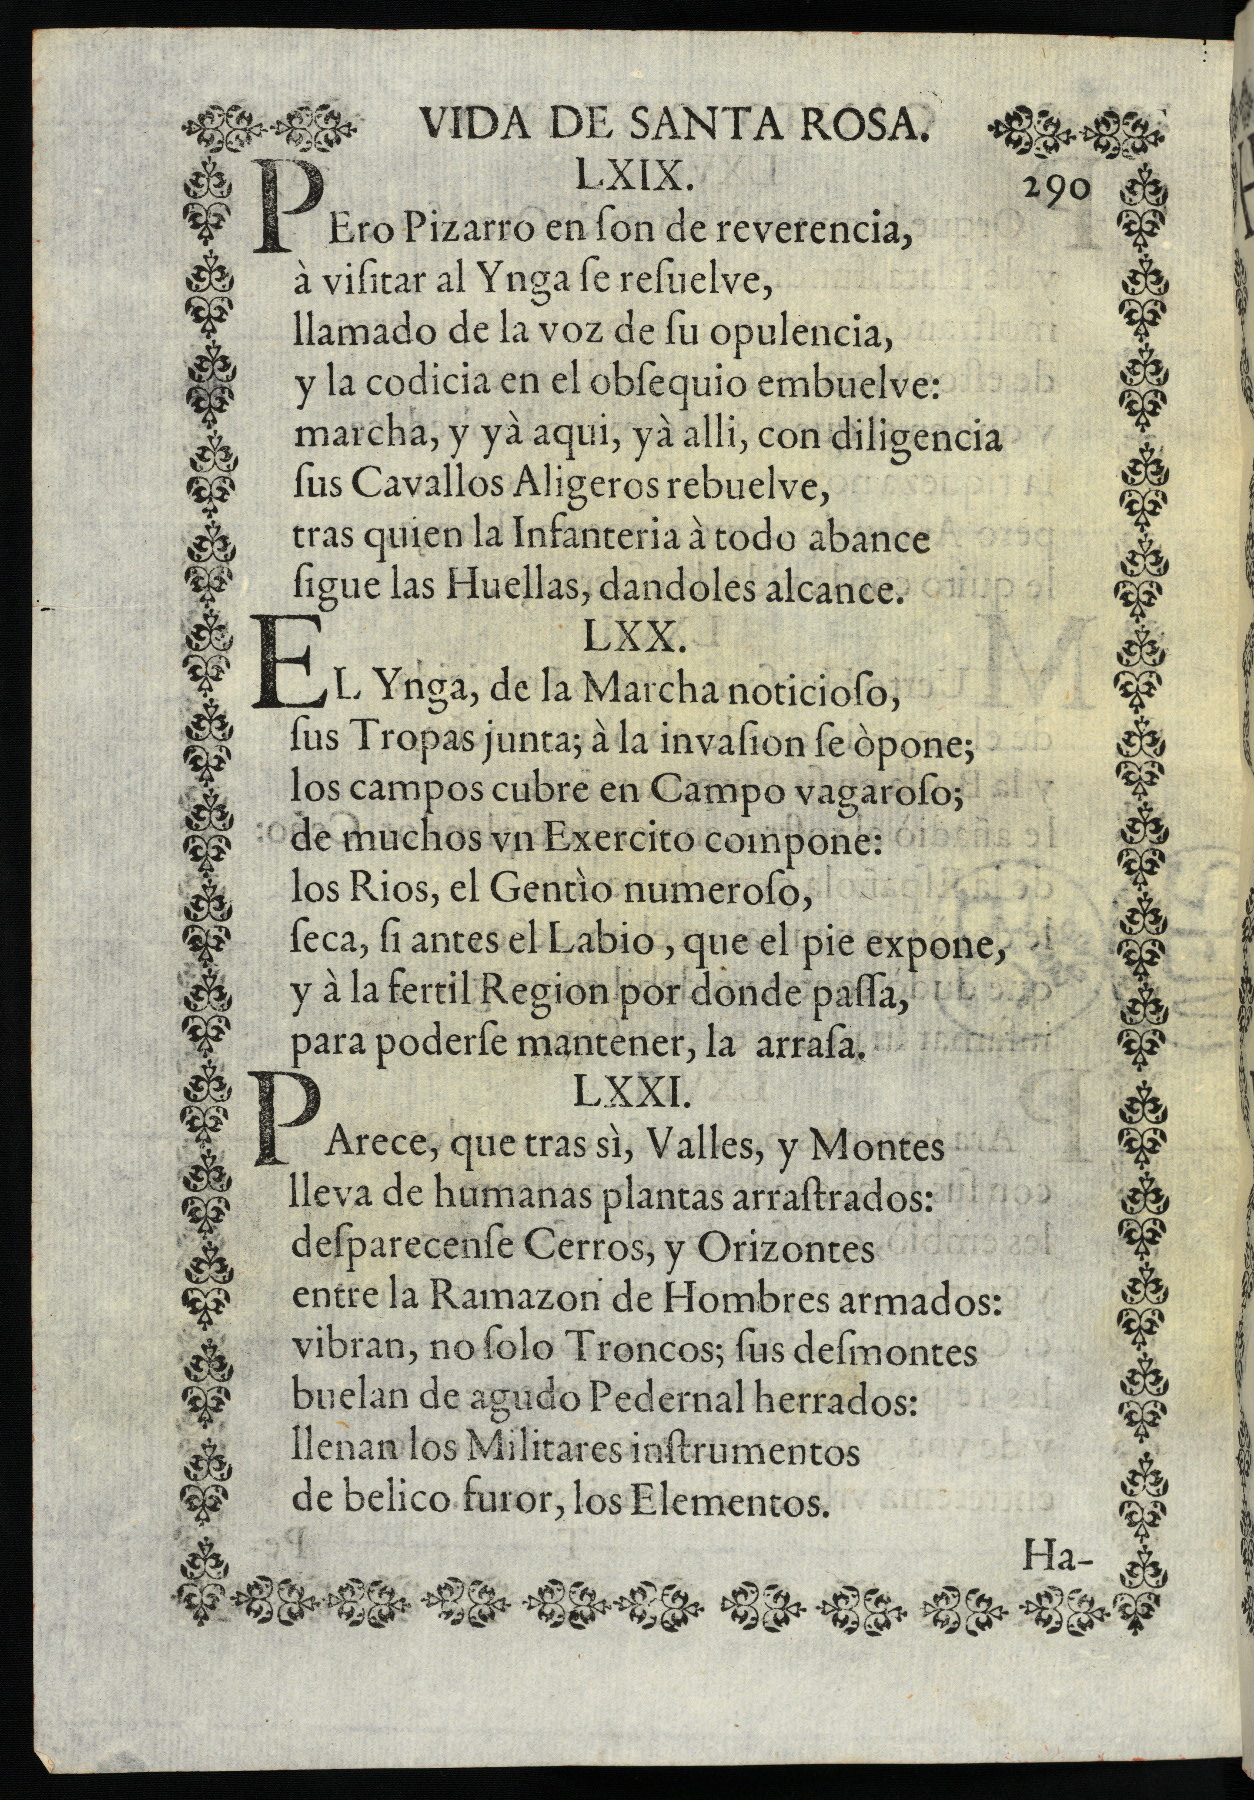 VIDA DE SANTA ROSA.
LXIX.
290
PEro Pizarro en ſon de reverencia,
à viſitar al Ynga ſe reſuelve,
llamado de la voz de ſu opulencia,
y la codicia en el obſequio embuelve:
marcha, y yà aqui, yà alli, con diligencia
ſus Cavallos Aligeros rebuelve,
tras quien la Infanteria à todo abance
ſigue las Huellas, dandoles alcance.
LXX.
EL Ynga, de la Marcha noticioſo,
ſus Tropas junta; à la invaſion ſe òpone;
los campos cubre en Campo vagaroſo;
de muchos vn Exercito compone:
los Rios, el Gentìo numeroſo,
ſeca, ſi antes el Labio, que el pie expone,
y à la fertil Region por donde paſſa,
para poderſe mantener, la arraſa.
LXXI.
PArece, que tras sì, Valles, y Montes
lleva de humanas plantas arraſtrados:
deſparecenſe Cerros, y Orizontes
entre la Ramazon de Hombres armados:
vibran, no ſolo Troncos; ſus deſmontes
buelan de agudo Pedernal herrados:
llenan los Militares inſtrumentos
de belico furor, los Elementos.
Ha-